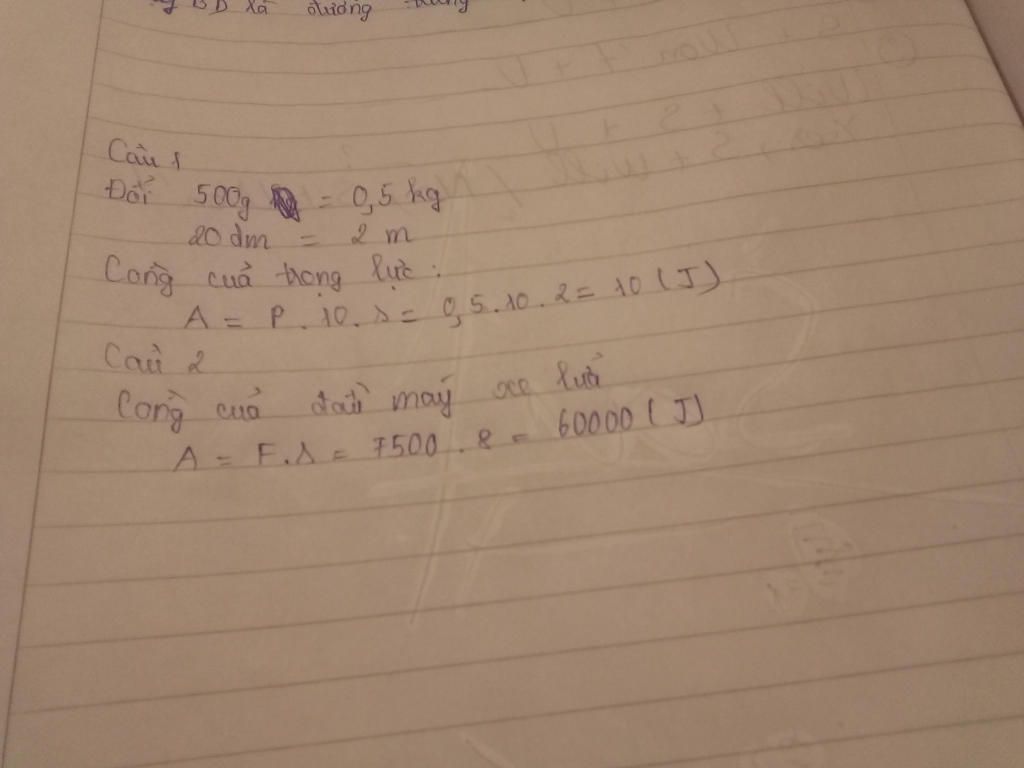 BD xã đường
Câu 1
Đổi 500g = 0,5 kg
20 dm = 2 m
Công của trọng lực:
A = P . 10 . s = 0,5 . 10 . 2 = 10 (J)
Câu 2
Công của đầu máy xe lửa
A = F.s = 7500 . 8 = 60000 (J)